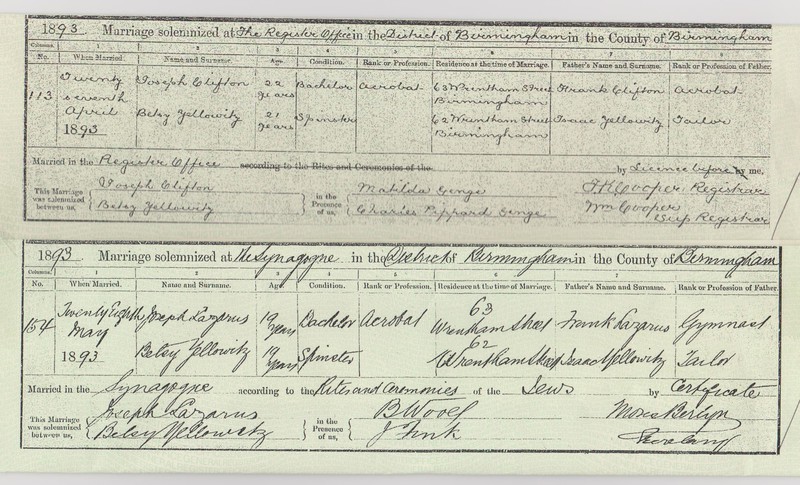 1893 Marriage solemnized at The Register Office in the District of Birmingham in the County of Birmingham
Columns. 1 2 3 4 5 6 7 8
No. When Married. Name and Surname. Age. Condition. Rank or Profession. Residence at the time of Marriage. Father's Name and Surname. Rank or Profession of Father.
Twenty Joseph Clifton 22 years Bachelor Acrobat 63 Wrentham Street Frank Clifton Acrobat
113 seventh Birmingham
April Betsy Yellowitz 21 years Spinster 62 Wrentham Street Isaac Yellowitz Tailor
1893 Birmingham
Married in the Register Office according to the Rites and Ceremonies of the by Licence before by me,
This Marriage was solemnized between us, Joseph Clifton in the Presence of us, Matilda Genge F K Cooper Registrar
Betsy Yellowitz Charles Pippard Genge Wm Cooper
Sup Registrar
1893. Marriage solemnized at the Synagogue in the District of Birmingham in the County of Birmingham
Columns. 1 2 3 4 5 6 7 8
No. When Married. Name and Surname. Age. Condition. Rank or Profession. Residence at the time of Marriage. Father's Name and Surname. Rank or Profession of Father.
154 Twenty Eighth Joseph Lazarus 19 years Bachelor Acrobat 63 Wrentham Street Frank Lazarus Gymnast
May
1893 Betsy Yellowitz 19 years Spinster 62 Wrentham Street Isaac Yellowitz Tailor
Married in the Synagogue according to the Rites and Ceremonies of the Jews by Certificate
This Marriage was solemnized between us, Joseph Lazarus in the Presence of us, B Woolf Moses Berlyn
Betsy Yellowitz J Fink Secretary